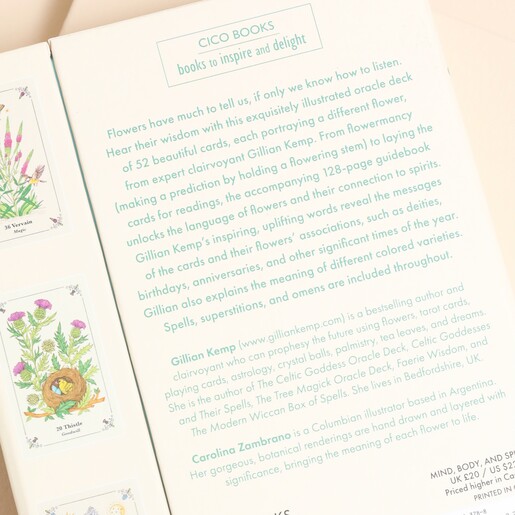 CICO BOOKS
books to inspire and delight
Flowers have much to tell us, if only we know how to listen.
Hear their wisdom with this exquisitely illustrated oracle deck
of 52 beautiful cards, each portraying a different flower,
from expert clairvoyant Gillian Kemp. From flowermancy
(making a prediction by holding a flowering stem) to laying the
cards for readings, the accompanying 128-page guidebook
unlocks the language of flowers and their connection to spirits.
Gillian Kemp's inspiring, uplifting words reveal the messages
of the cards and their flowers' associations, such as deities,
birthdays, anniversaries, and other significant times of the year.
Gillian also explains the meaning of different colored varieties.
Spells, superstitions, and omens are included throughout.
Gillian Kemp (www.gilliankemp.com) is a bestselling author and
clairvoyant who can prophesy the future using flowers, tarot cards,
playing cards, astrology, crystal balls, palmistry, tea leaves, and dreams.
She is the author of The Celtic Goddess Oracle Deck, Celtic Goddesses
and Their Spells, The Tree Magick Oracle Deck, Faerie Wisdom, and
The Modern Wiccan Box of Spells. She lives in Bedfordshire, UK.
Carolina Zambrano is a Columbian illustrator based in Argentina.
Her gorgeous, botanical renderings are hand drawn and layered with
significance, bringing the meaning of each flower to life.
MIND, BODY, AND SP
UK £20 / US $2
Priced higher in Ca
PRINTED IN
36 Vervain
Magic
20 Thistle
Goodwill